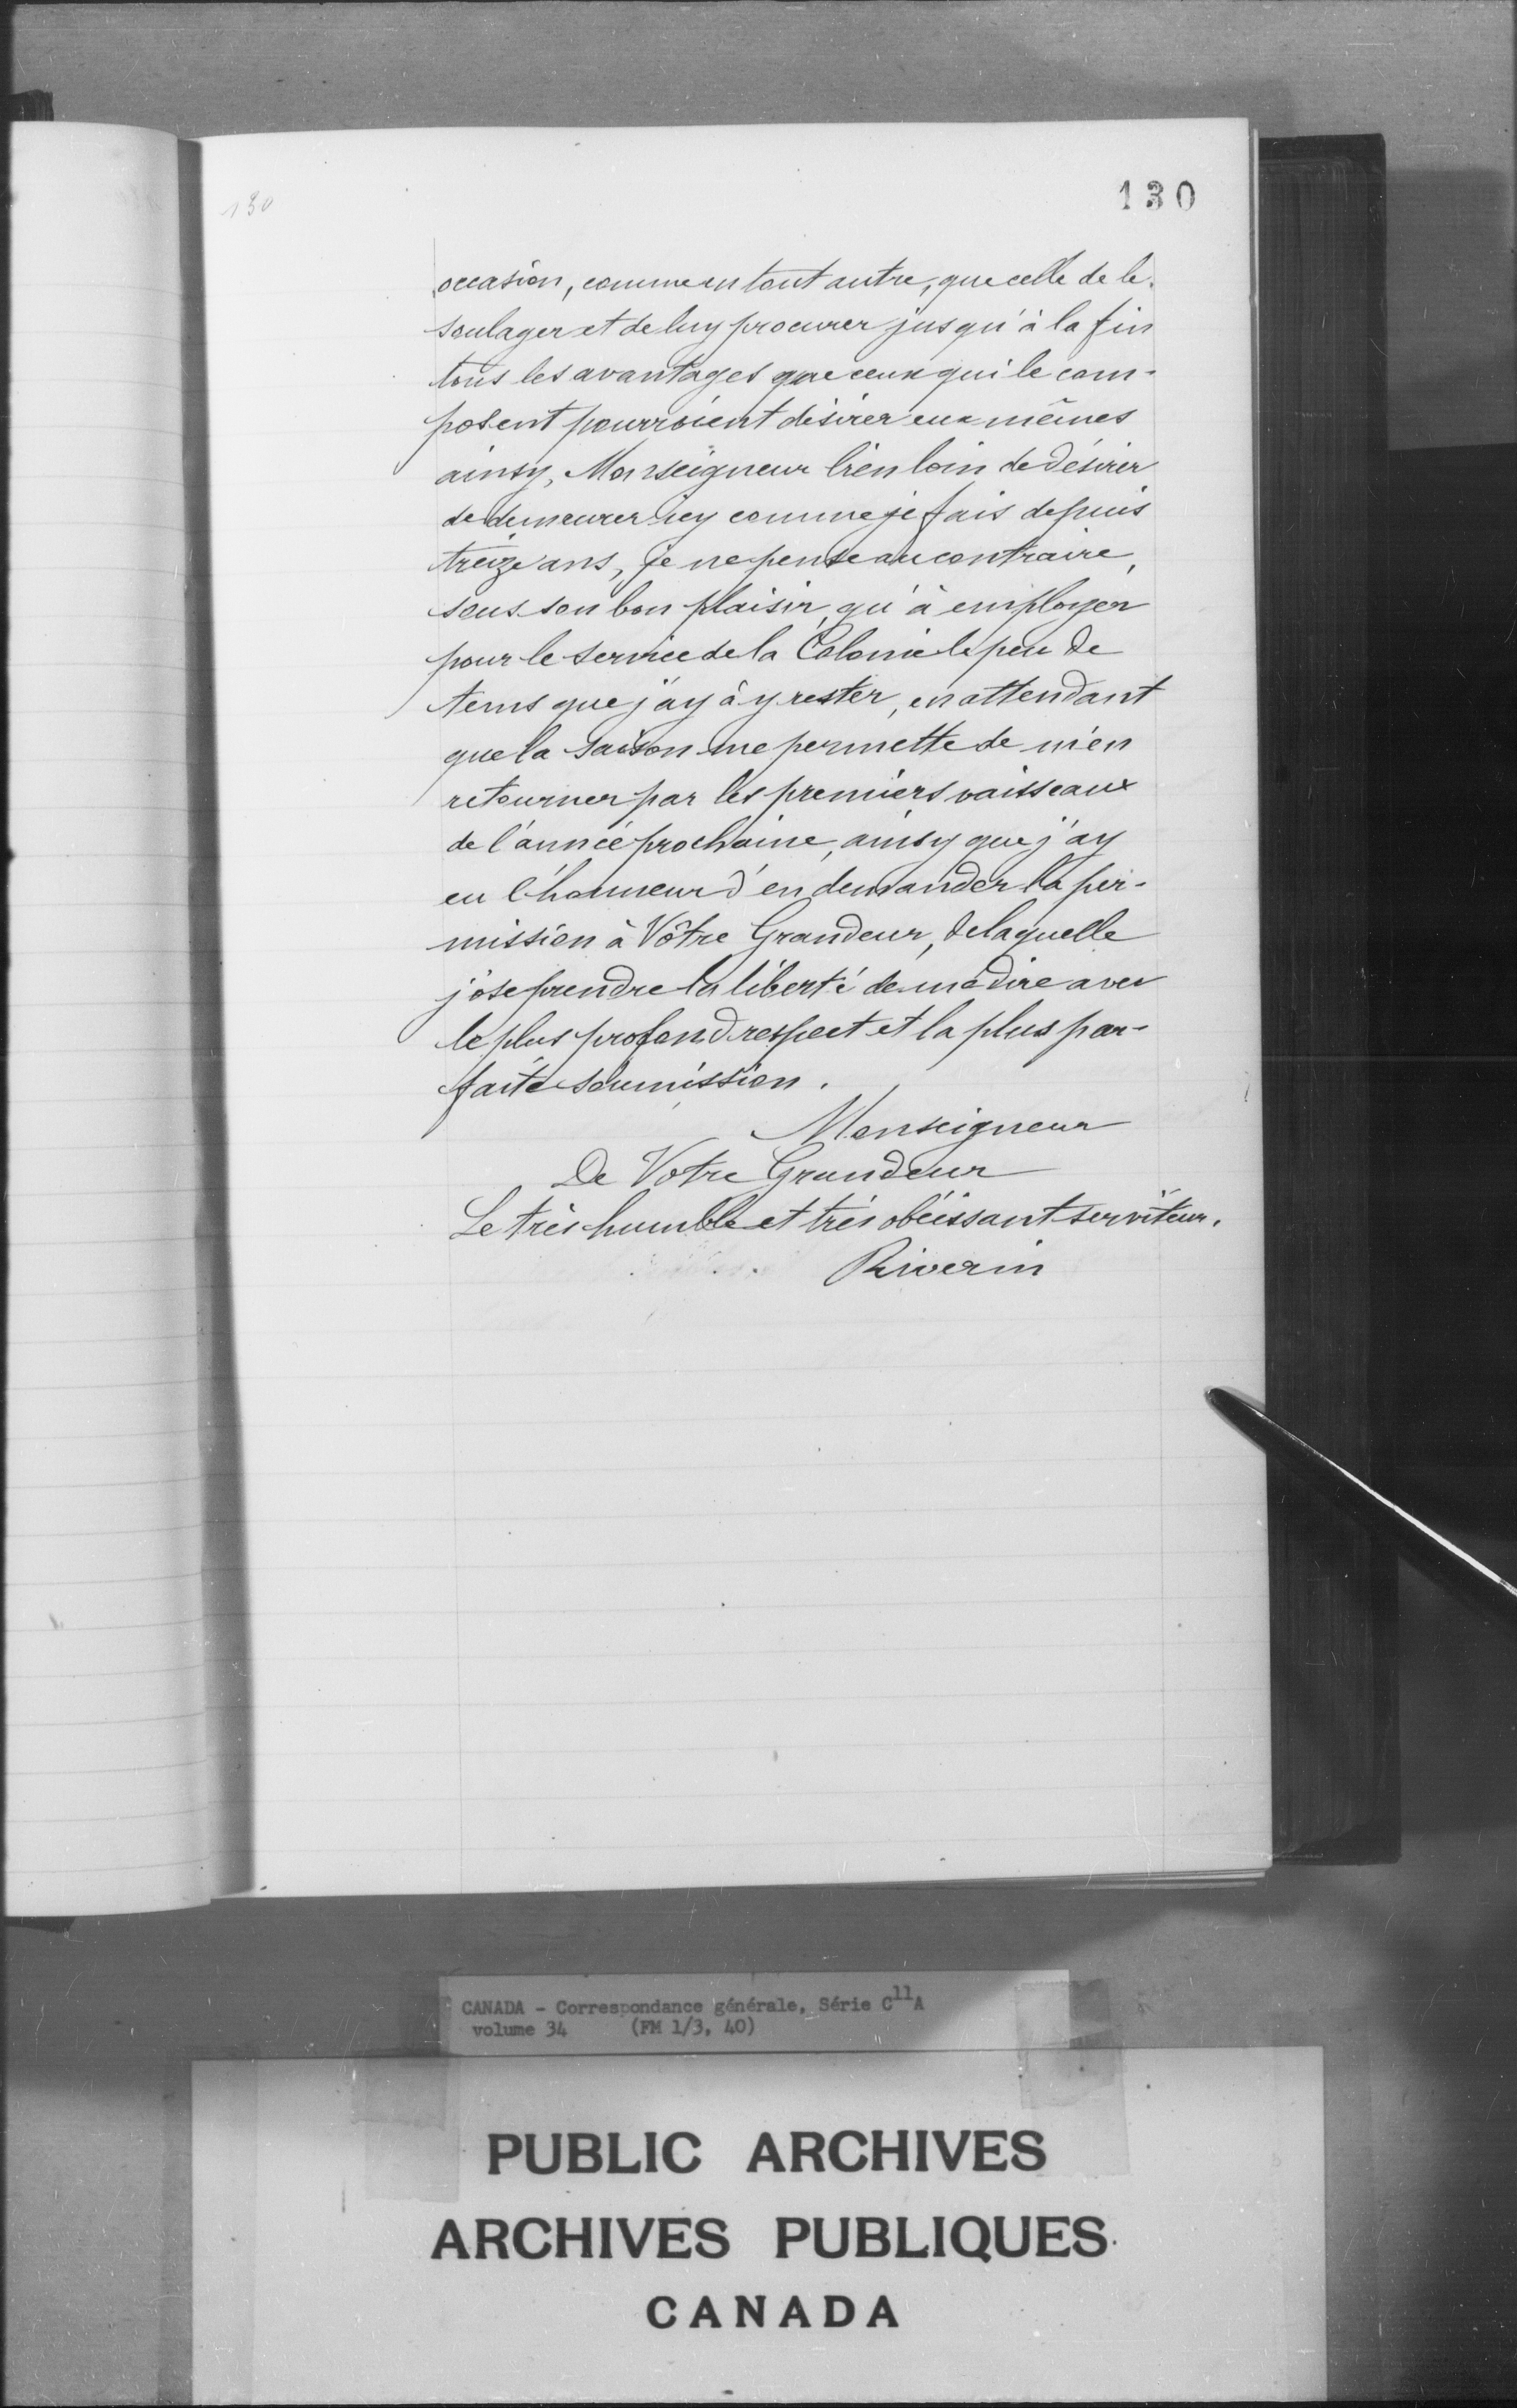 130
130
occasion, comme en tout autre, que celle de le
soulager et de luy procurer jusqu'à la fin
tous les avantages que ceux qui le com-
posent pourroient désirer eux mêmes
ainsy, Monseigneur bien loin de désirer
de demeurer icy comme je fais depuis
treize ans, je ne pense au contraire,
sous son bon plaisir, qu'à employer
pour le service de la Colonie le peu de
tems que j'ay à y rester, en attendant
que la saison me permette de m'en
retourner par les premiers vaisseaux
de l'année prochaine, ainsy que j'ay
eu l'honneur d'en demander la per-
mission à Vôtre Grandeur, de laquelle
j'ose prendre la liberté de me dire avec
le plus profond respect et la plus par-
faite soumission.
Monseigneur
De Votre Grandeur
Le très humble et très obéissant serviteur.
Riverin
CANADA - Correspondance générale, Série C11A
volume 34 (FM 1/3, 40)
PUBLIC ARCHIVES
ARCHIVES PUBLIQUES
CANADA